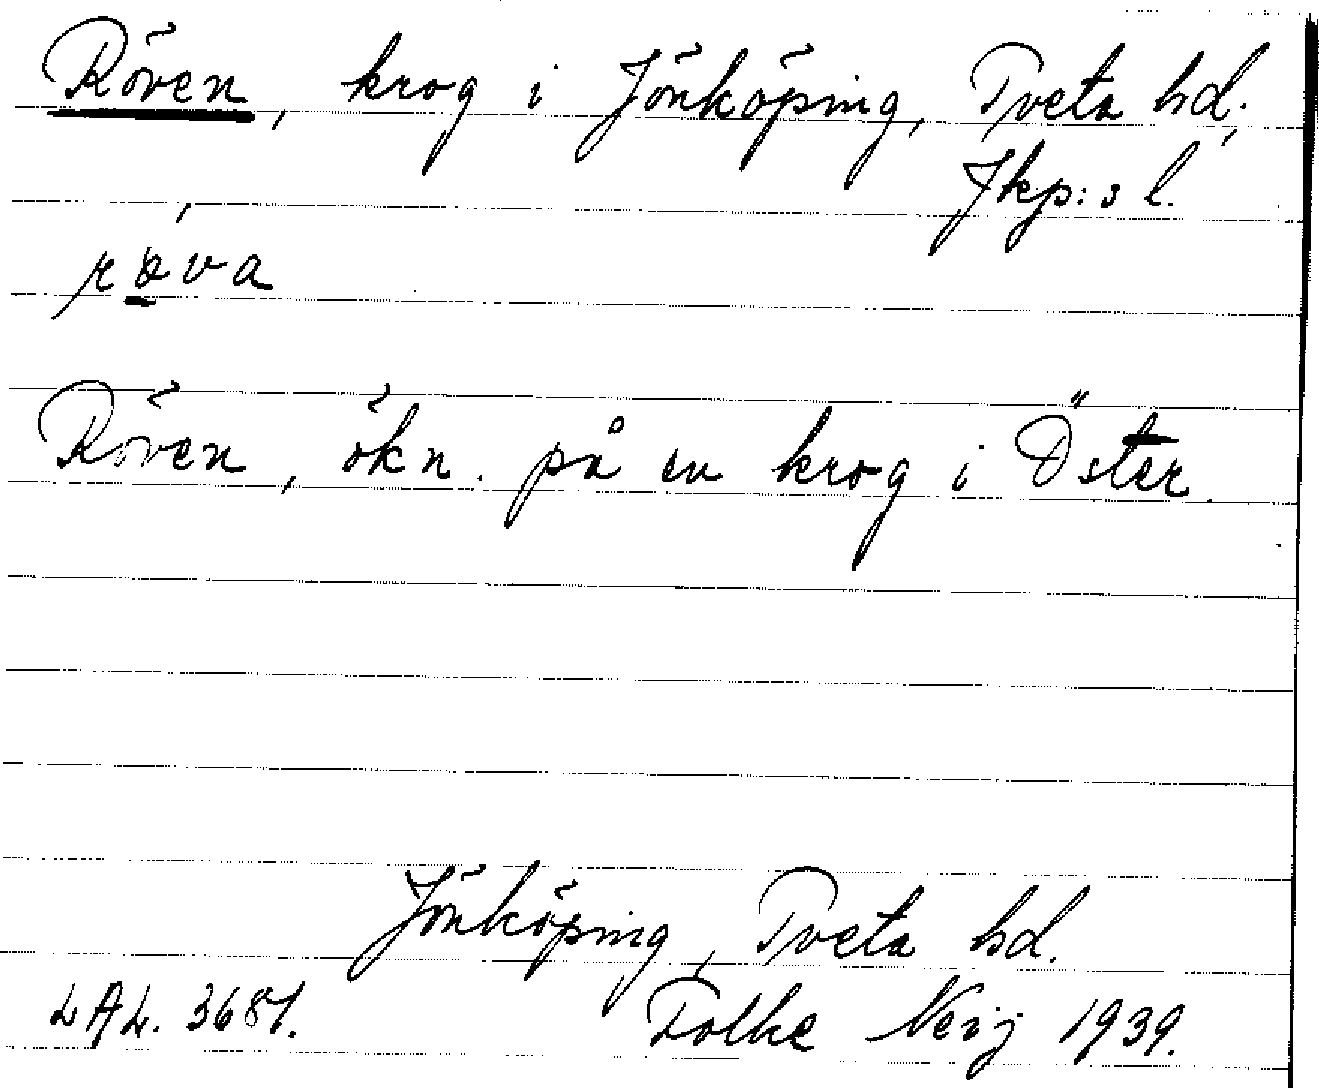 Röven, krog i Jönköping, Tveta hd.,
Jkp:s l.
röva
Röven, ökn. på en krog i Öster.
Jönköping, Tveta hd.
LAL. 3687. Folke Neij 1939.